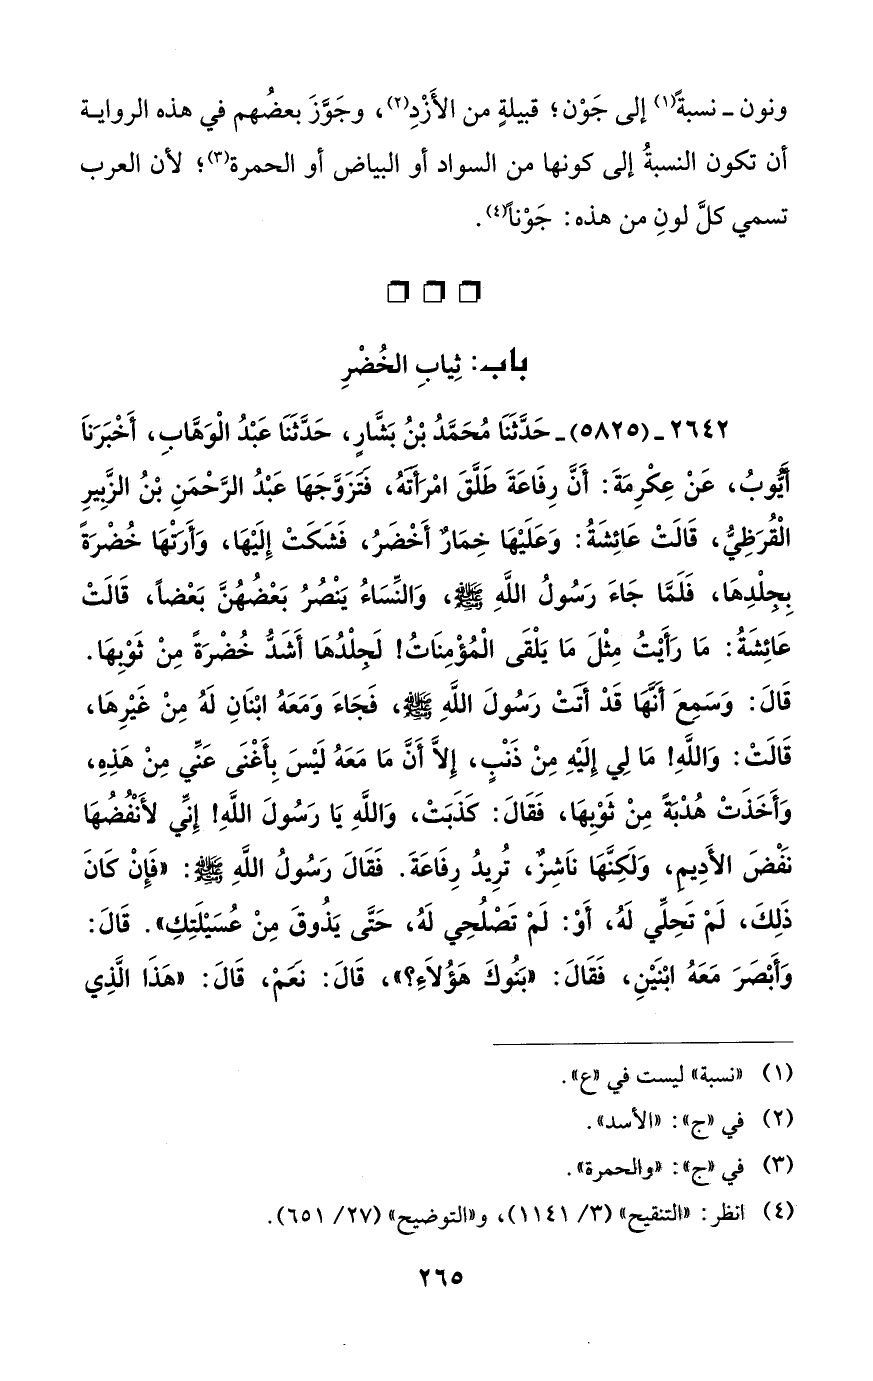 ونون ـ نسبةً(١) إلى جَوْن؛ قبيلةٍ من الأَزْدِ(٢)، وجَوَّزَ بعضُهم في هذه الرواية
أن تكون النسبةُ إلى كونها من السواد أو البياض أو الحمرة(٣)؛ لأن العرب
تسمي كلَّ لونٍ من هذه: جَوْناً(٤).
باب: ثِيابِ الخُضْرِ
٢٦٤٢ ـ (٥٨٢٥) ـ حَدَّثَنَا مُحَمَّدُ بْنُ بَشَّارٍ، حَدَّثَنَا عَبْدُ الْوَهَّابِ، أَخْبَرَنَا
أَيُّوبُ، عَنْ عِكْرِمَةَ: أَنَّ رِفَاعَةَ طَلَّقَ امْرَأَتَهُ، فَتَزَوَّجَهَا عَبْدُ الرَّحْمَنِ بْنُ الزَّبِيرِ
الْقُرَظِيُّ، قَالَتْ عَائِشَةُ: وَعَلَيْهَا خِمَارٌ أَخْضَرُ، فَشَكَتْ إِلَيْهَا، وَأَرَتْهَا خُضْرَةً
بِجِلْدِهَا، فَلَمَّا جَاءَ رَسُولُ اللَّهِ ﷺ، وَالنِّسَاءُ يَنْصُرُ بَعْضُهُنَّ بَعْضاً، قَالَتْ
عَائِشَةُ: مَا رَأَيْتُ مِثْلَ مَا يَلْقَى الْمُؤْمِنَاتُ! لَجِلْدُهَا أَشَدُّ خُضْرَةً مِنْ ثَوْبِهَا.
قَالَ: وَسَمِعَ أَنَّهَا قَدْ أَتَتْ رَسُولَ اللَّهِ ﷺ، فَجَاءَ وَمَعَهُ ابْنَانِ لَهُ مِنْ غَيْرِهَا،
قَالَتْ: وَاللَّهِ! مَا لِي إِلَيْهِ مِنْ ذَنْبٍ، إِلاَّ أَنَّ مَا مَعَهُ لَيْسَ بِأَغْنَى عَنِّي مِنْ هَذِهِ،
وَأَخَذَتْ هُدْبَةً مِنْ ثَوْبِهَا، فَقَالَ: كَذَبَتْ، وَاللَّهِ يَا رَسُولَ اللَّهِ! إِنِّي لأَنْفُضُهَا
نَفْضَ الأَدِيمِ، وَلَكِنَّهَا نَاشِزٌ، تُرِيدُ رِفَاعَةَ. فَقَالَ رَسُولُ اللَّهِ ﷺ: «فَإِنْ كَانَ
ذَلِكَ، لَمْ تَحِلِّي لَهُ، أَوْ: لَمْ تَصْلُحِي لَهُ، حَتَّى يَذُوقَ مِنْ عُسَيْلَتِكِ». قَالَ:
وَأَبْصَرَ مَعَهُ ابْنَيْنِ، فَقَالَ: «بَنُوكَ هَؤُلاَءِ؟»، قَالَ: نَعَمْ، قَالَ: «هَذَا الَّذِي
(١) «نسبة» ليست في «ع».
(٢) في «ج»: «الأسد».
(٣) في «ج»: «والحمرة».
(٤) انظر: «التنقيح» (٣/ ١١٤١)، و«التوضيح» (٢٧/ ٦٥١).
٢٦٥